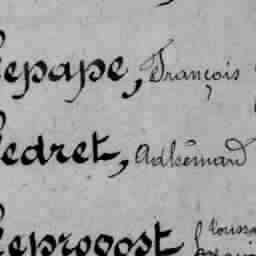 Lepape, François
Ledret, Adhémard
Leprovost